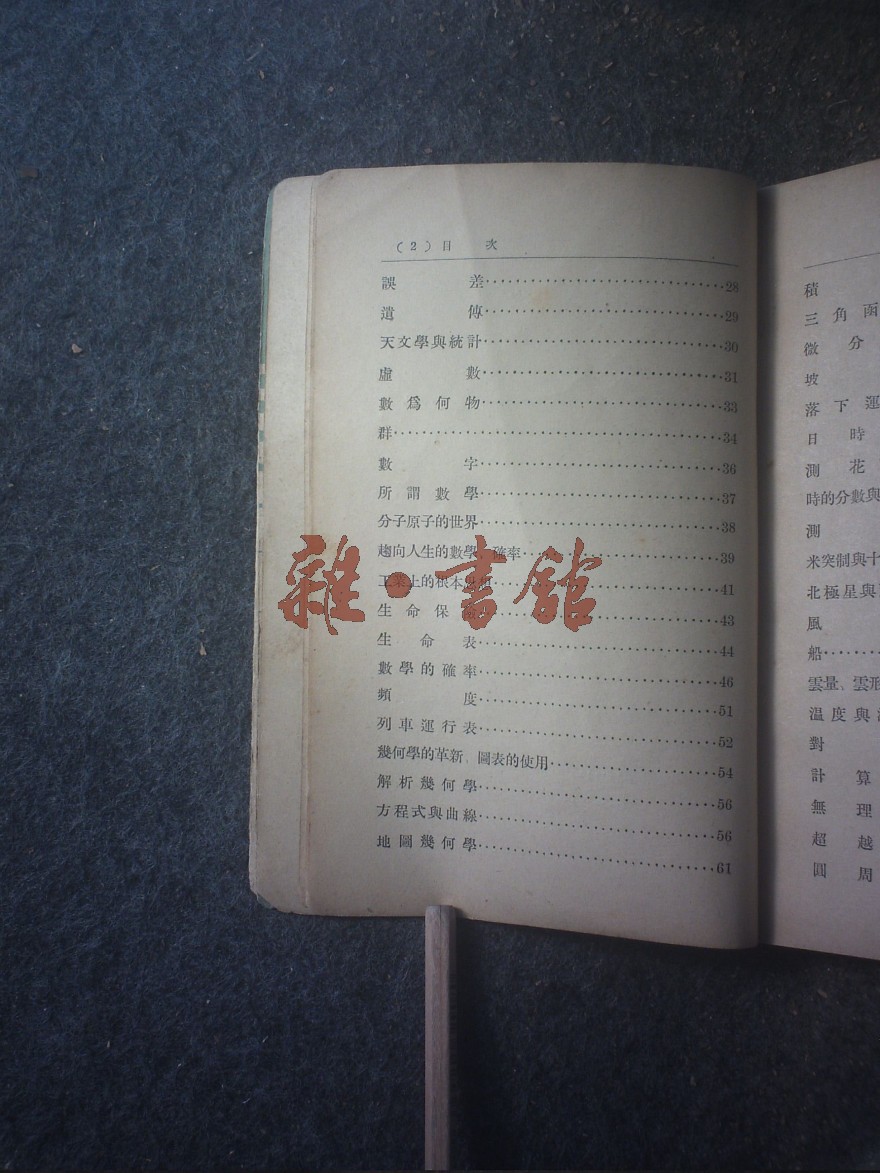 (2) 目 次
誤差 28
遺傳 29
天文學與統計 30
虛數 31
數爲何物 33
群 34
數字 36
所謂數學 37
分子原子的世界 38
趨向人生的數學、確率 39
工業上的根本 41
生命保 43
生命表 44
數學的確率 46
頻度 51
列車運行表 52
幾何學的革新、圖表的使用 54
解析幾何學 56
方程式與曲線 56
地圖幾何學 61
積
三角函
微分
坡
落下運
日時
測花
時的分數與
測
米突制與十
北極星與
風
船
雲量、雲形
温度與
對
計算
無理
超越
圓周
雜·書館